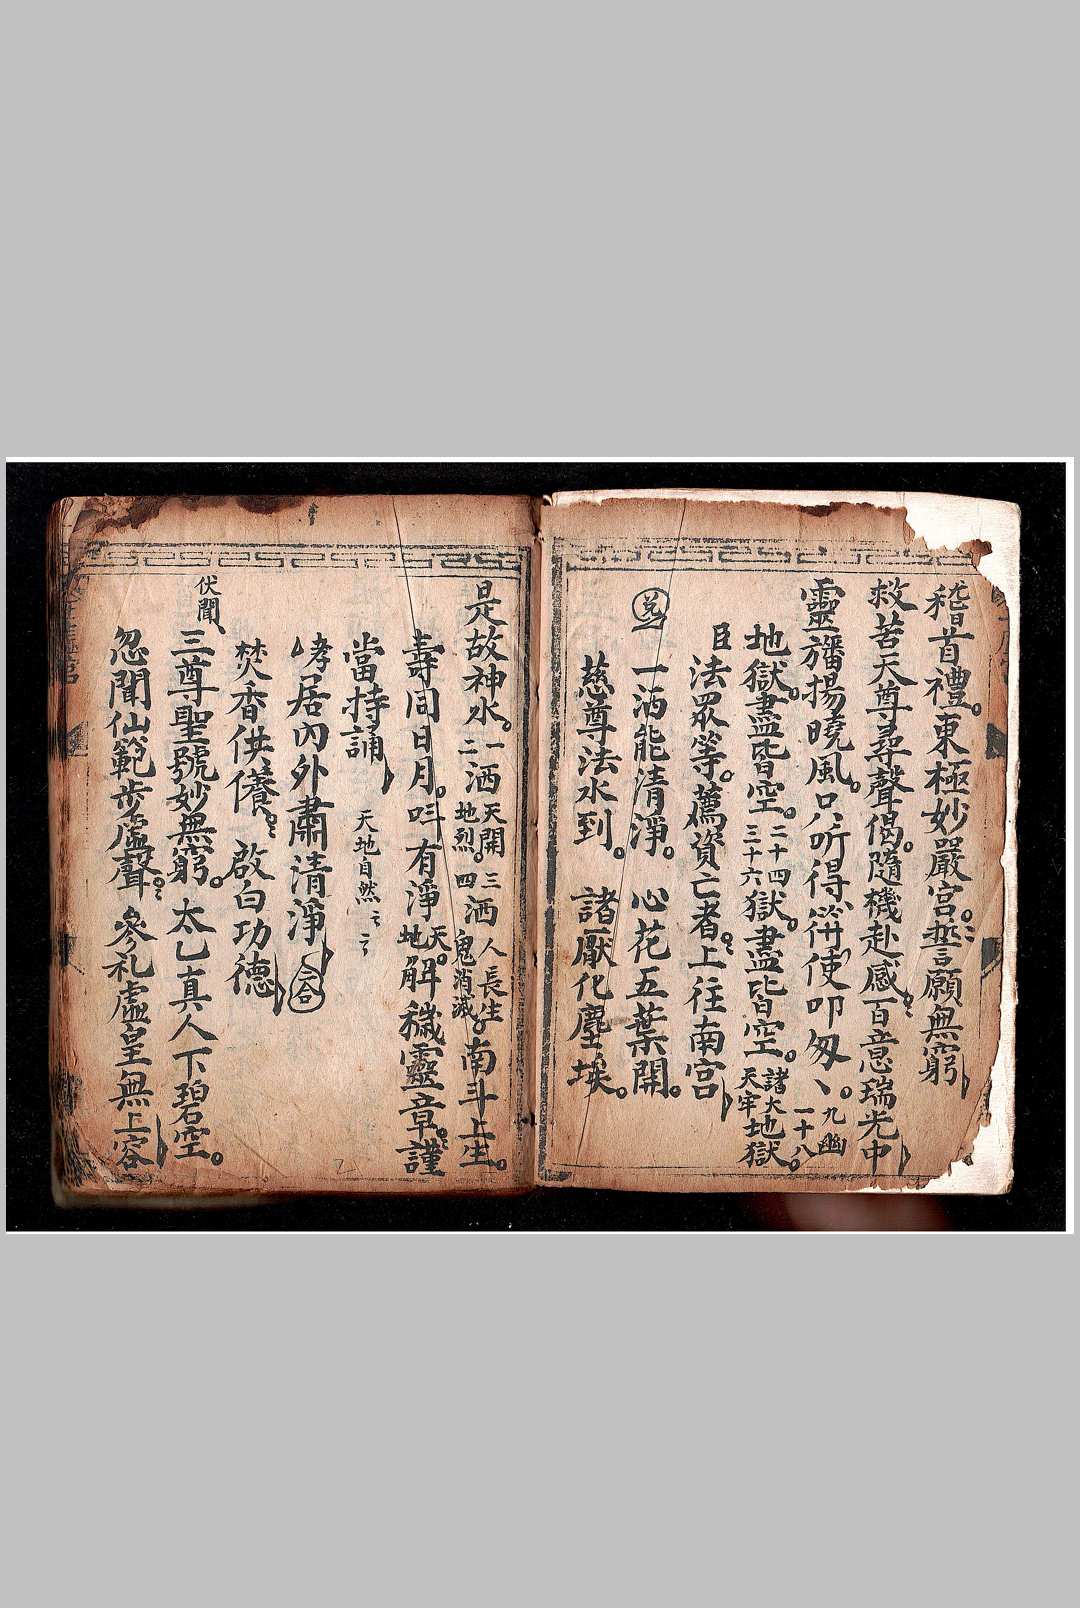 稽首禮。東極妙嚴宮。誓願無窮
救苦天尊尋聲偈。隨機赴感。百意瑞光中
靈旛揚曉風。只听得 使叩匆、。九幽
一十八
地獄。盡皆空。二十四
三十六獄。盡皆空。諸大
天牢地獄。
臣法眾等。薦資亡者。上往南宮
一洒能清淨。心花五葉開。
慈尊法水到。諸厭化塵埃。
是故神水。一
二洒天開
地烈。三
四洒人長生
鬼消滅。南斗上生。
壽同日月。吽有淨天。
地解穢靈章。謹
當持誦 天地自然
孝居內外肅清淨
焚香供養。啟白功德
伏聞
三尊聖號妙無窮。太乙真人下碧空。
忽聞仙範步虛聲。參礼虛皇無上容